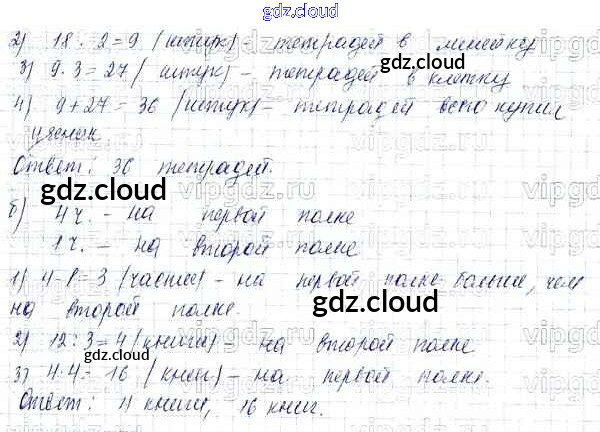 gdz.cloud
2) 18 : 2 = 9 (штук) - тетрадей в линейку
3) 9·3 = 27 (штук) - тетрадей в клетку
gdz.cloud
4) 9 + 27 = 36 (штук) - тетрадей всего купил
ученик
Ответ: 36 тетрадей.
gdz.cloud
gdz.cloud
б) 4 ч. - на первой полке
1 ч. - на второй полке
1) 4-1 = 3 (части) - на первой полке больше, чем
на второй полке.
gdz.cloud
2) 12 : 3 = 4 (книги) на второй полке
gdz.cloud
3) 4·4 = 16 (книг) - на первой полке.
Ответ: 4 книги, 16 книг.
gdz.cloud